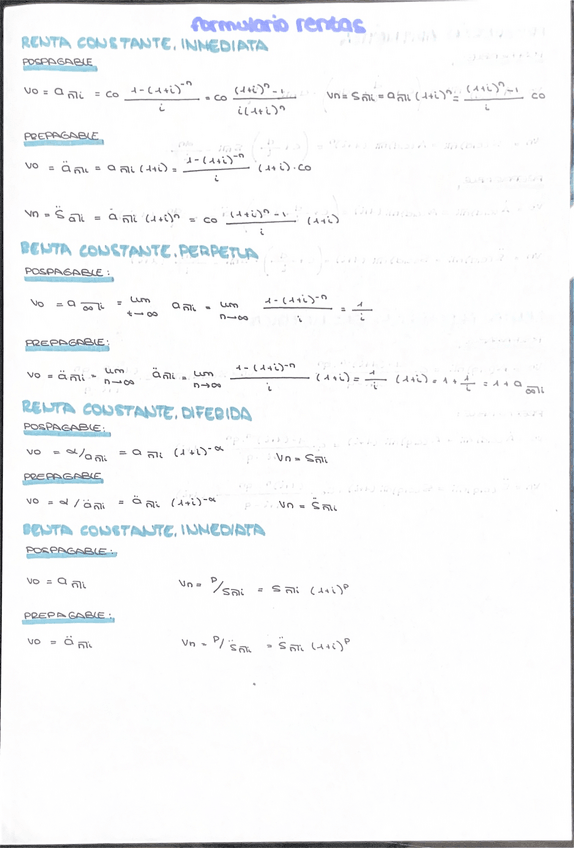 formulario rentas
RENTA CONSTANTE, INMEDIATA
POSPAGABLE
V0 = a n̅|i = C0 (1-(1+i)^-n)/i = C0 ((1+i)^n - 1)/(i(1+i)^n)    Vn = S n̅|i = a n̅|i (1+i)^n = ((1+i)^n - 1)/i C0
PREPAGABLE
V0 = ä n̅|i = a n̅|i (1+i) = (1-(1+i)^-n)/i (1+i) · C0
Vn = S̈ n̅|i = ä n̅|i (1+i)^n = C0 ((1+i)^n - 1)/i (1+i)
RENTA CONSTANTE, PERPETUA
POSPAGABLE:
V0 = a ∞̅|i = lim t→∞ a n̅|i = lim n→∞ (1-(1+i)^-n)/i = 1/i
PREPAGABLE:
V0 = ä n̅|i = lim n→∞ ä n̅|i = lim n→∞ (1-(1+i)^-n)/i (1+i) = 1/i (1+i) = 1 + 1/i = 1 + a ∞̅|i
RENTA CONSTANTE, DIFERIDA
POSPAGABLE:
V0 = α/a n̅|i = a n̅|i (1+i)^-α    Vn = S n̅|i
PREPAGABLE
V0 = α/ä n̅|i = ä n̅|i (1+i)^-α    Vn = S̈ n̅|i
RENTA CONSTANTE, INMEDIATA
POSPAGABLE:
V0 = a n̅|i    Vn = P/S n̅|i = S n̅|i (1+i)^P
PREPAGABLE:
V0 = ä n̅|i    Vn = P/S̈ n̅|i = S̈ n̅|i (1+i)^P